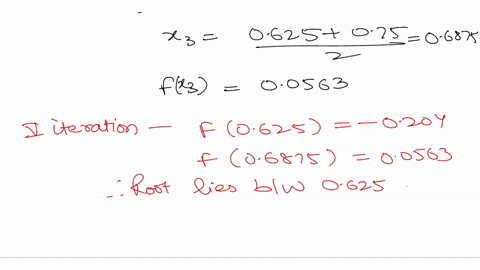 x₃ = 0.625 + 0.75 / 2 = 0.6875
f(x₃) = 0.0563
V iteration — f(0.625) = -0.204
f(0.6875) = 0.0563
∴ Root lies b/w 0.625